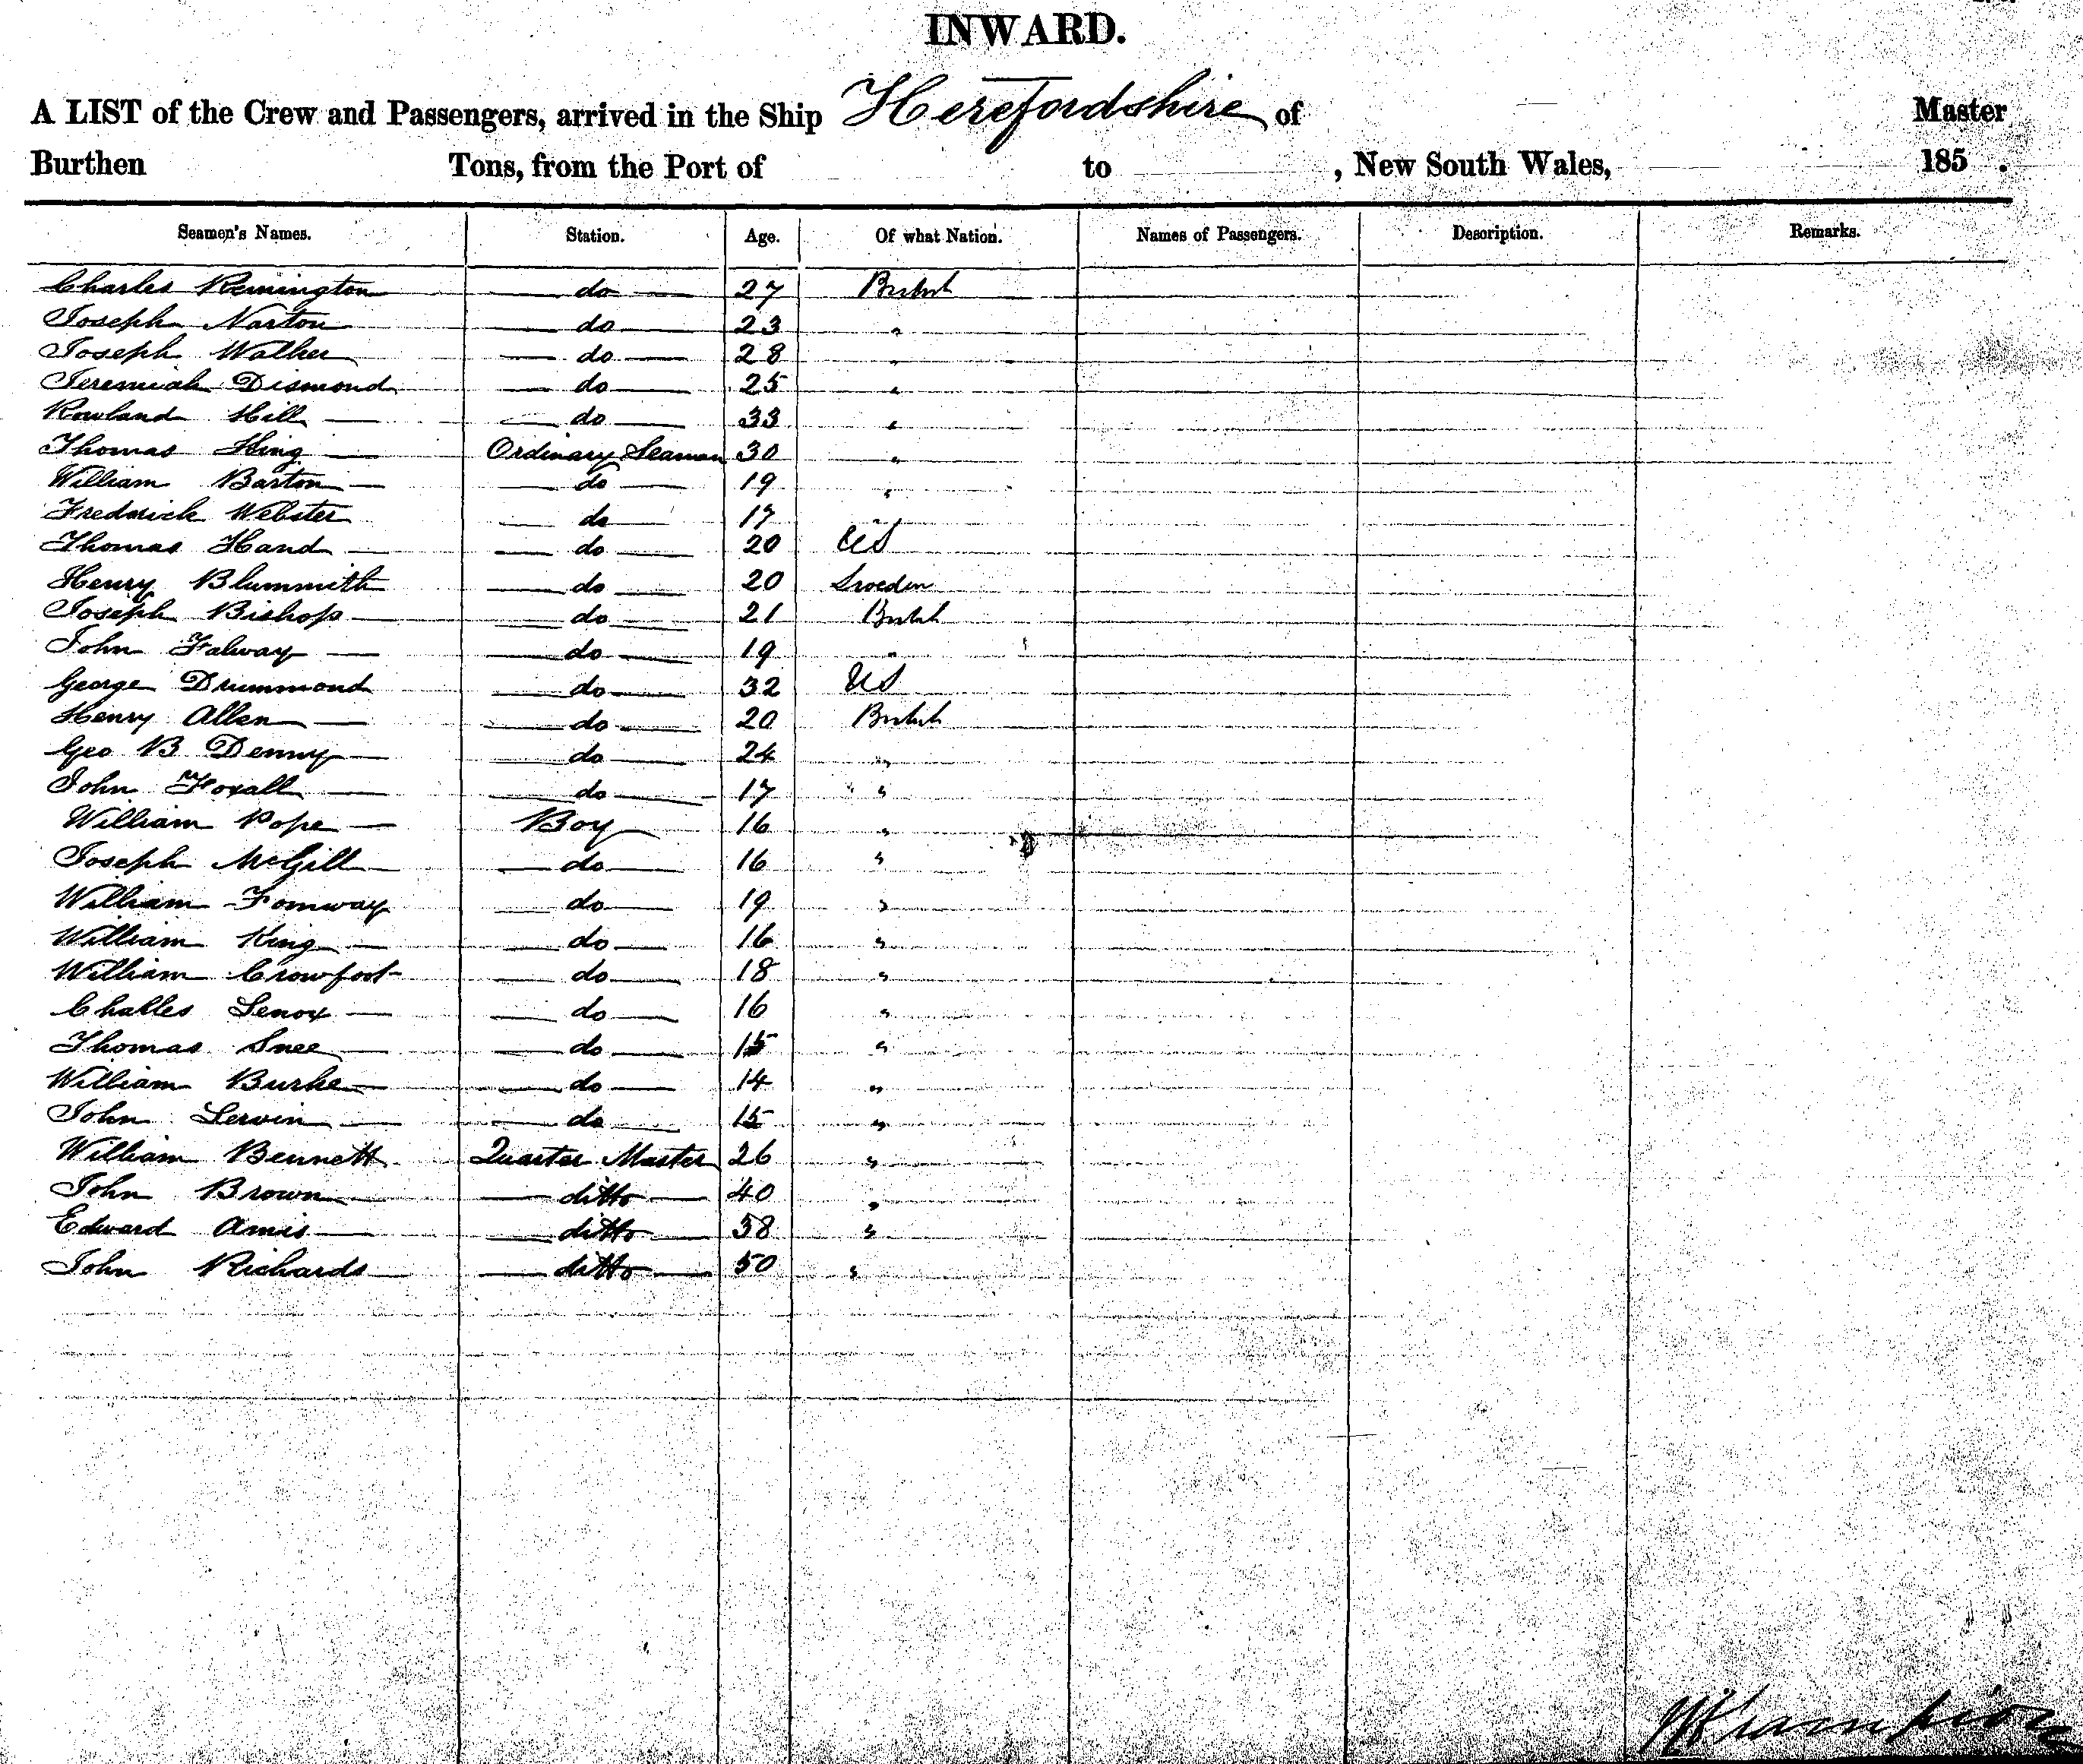 INWARD.
A LIST of the Crew and Passengers, arrived in the Ship Herefordshire of Master
Burthen Tons, from the Port of to , New South Wales, 185 .
Seamen's Names. Station. Age. Of what Nation. Names of Passengers. Description. Remarks.
Charles Remington do 27 British
Joseph Narton do 23 "
Joseph Walker do 28 "
Jeremiah Dismond do 25 "
Rowland Hill do 33 "
Thomas King Ordinary Seaman 30 "
William Barton do 19 "
Fredrick Webster do 17 "
Thomas Hand do 20 US
Henry Blummith do 20 Sweden
Joseph Bishop do 21 British
John Falway do 19 "
George Drummond do 32 US
Henry Allen do 20 British
Geo B Denny do 24 "
John Foxall do 17 "
William Pope Boy 16 "
Joseph McGill do 16 "
William Fomway do 19 "
William King do 16 "
William Crowfoot do 18 "
Challes Lenox do 16 "
Thomas Snee do 15 "
William Burke do 14 "
John Lerwin do 15 "
William Bennett Quarter Master 26 "
John Brown ditto 40 "
Edward Amis ditto 38 "
John Richards ditto 50 "